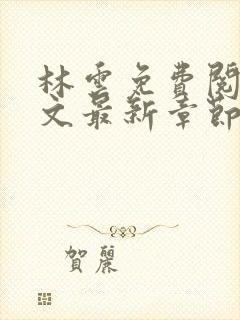 林雲免費閱
文最新章節
賀麗